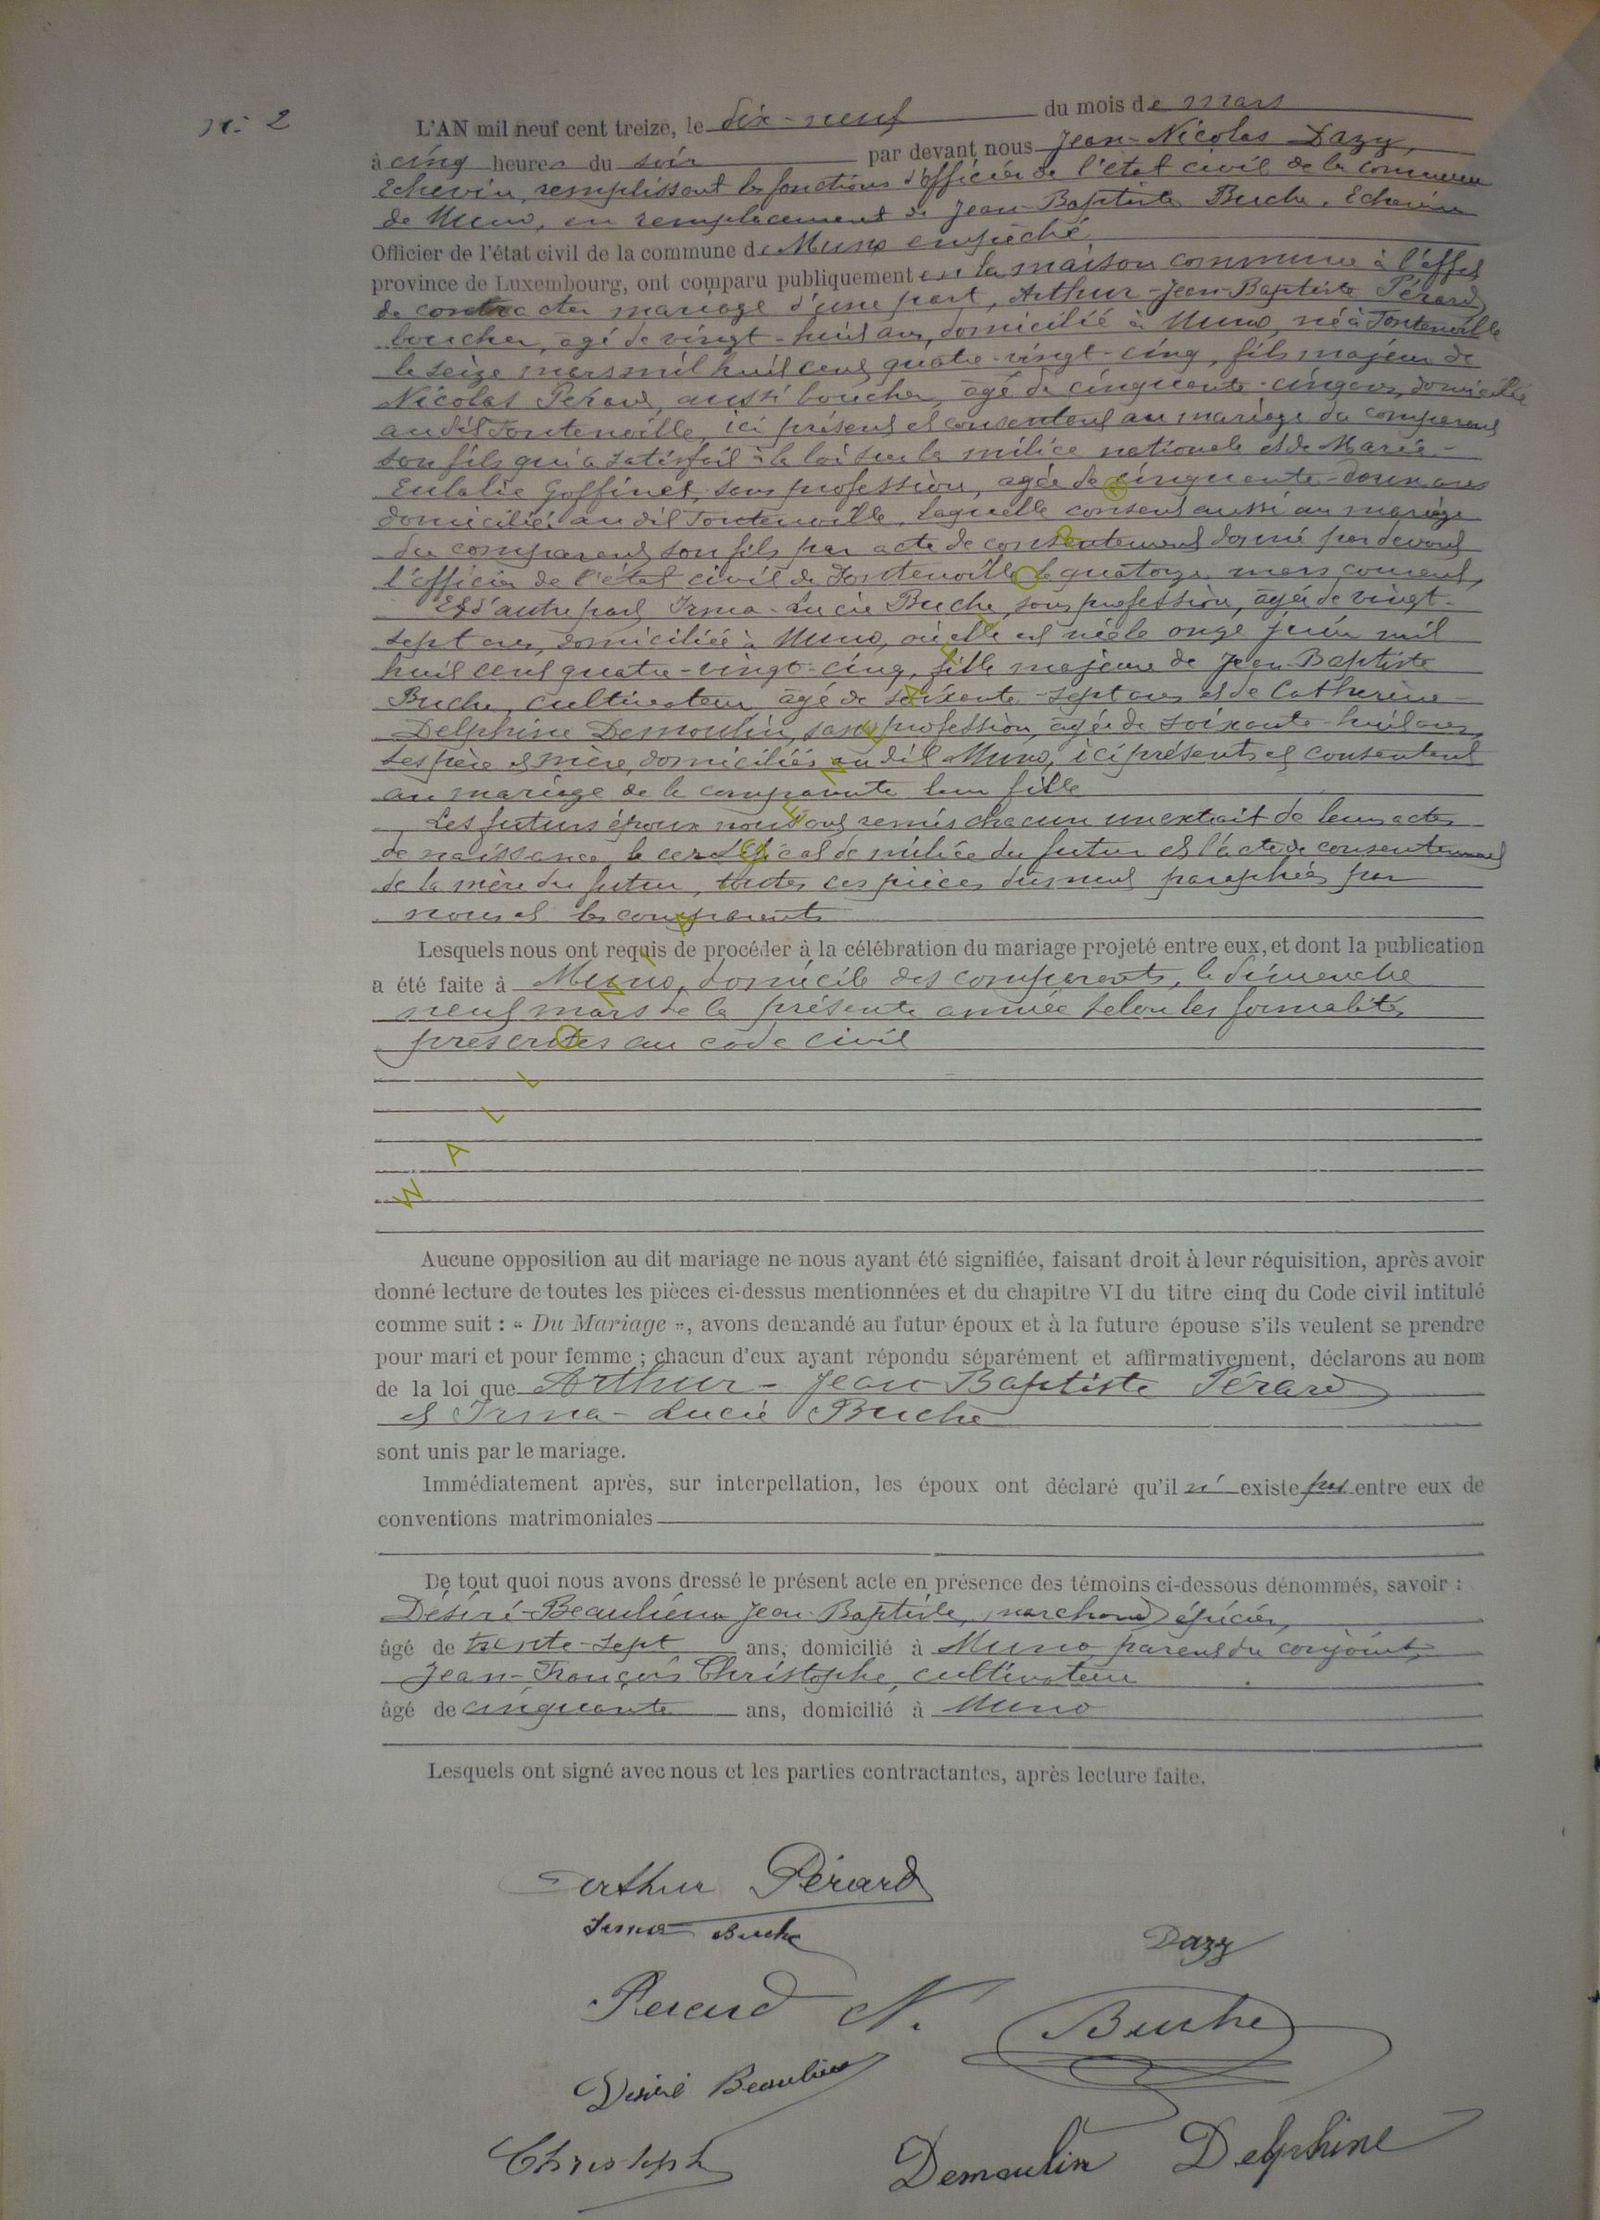 N° 2
L'AN mil neuf cent treize, le dix-neuf du mois de mars
à cinq heures du soir par devant nous Jean-Nicolas Dazy,
Echevin, remplissant les fonctions d'officier de l'état civil de la commune
de Muno, en remplacement de Jean-Baptiste Buche, Echevin
Officier de l'état civil de la commune de Muno empêché
province de Luxembourg, ont comparu publiquement en la maison commune à l'effet
de contracter mariage d'une part, Arthur-Jean-Baptiste Pérard
boucher, agé de vingt-huit ans, domicilié à Muno, né à Fontenoille
le seize mars mil huit cent quatre-vingt-cinq, fils majeur de
Nicolas Pérard, aussi boucher, âgé de cinquante-cinq ans, domicilié
au dit Fontenoille, ici présent et consentant au mariage du comparant
son fils qui a satisfait à la loi sur la milice nationale et de Marie-
Eulalie Goffinet, sans profession, agée de cinquante-deux ans
domiciliée au dit Fontenoille, laquelle consent aussi au mariage
du comparant son fils par acte de consentement donné par devant
l'officier de l'état civil de Fontenoille le quatorze mars courant,
Et d'autre part Irma-Lucie Buche, sans profession, agée de vingt-
sept ans, domiciliée à Muno, où elle est née le onze juin mil
huit cent quatre-vingt-cinq, fille majeure de Jean-Baptiste
Buche, cultivateur âgé de soixante-sept ans et de Catherine-
Delphine Demoulin, sans profession, âgée de soixante-huit ans,
ses père et mère, domiciliés au dit Muno, ici présents et consentant
au mariage de la comparante leur fille
Les futurs époux nous ont remis chacun un extrait de leurs actes
de naissance, le certificat de milice du futur et l'acte de consentement
de la mère du futur, toutes ces pièces dûment paraphées par
nous et les comparants
Lesquels nous ont requis de procéder à la célébration du mariage projeté entre eux, et dont la publication
a été faite à Muno, domicile des comparants, le dimanche
neuf mars de la présente année selon les formalités
prescrites au code civil
WALLONIA GENEALOGIE ®
Aucune opposition au dit mariage ne nous ayant été signifiée, faisant droit à leur réquisition, après avoir
donné lecture de toutes les pièces ci-dessus mentionnées et du chapitre VI du titre cinq du Code civil intitulé
comme suit : « Du Mariage », avons demandé au futur époux et à la future épouse s'ils veulent se prendre
pour mari et pour femme ; chacun d'eux ayant répondu séparément et affirmativement, déclarons au nom
de la loi que Arthur-Jean-Baptiste Pérard
et Irma-Lucie Buche
sont unis par le mariage.
Immédiatement après, sur interpellation, les époux ont déclaré qu'il n'existe pas entre eux de
conventions matrimoniales
De tout quoi nous avons dressé le présent acte en présence des témoins ci-dessous dénommés, savoir :
Désiré-Beaulieu Jean-Baptiste, marchand épicier,
âgé de trente-sept ans, domicilié à Muno parent du conjoint
Jean-François Christophe, cultivateur
âgé de cinquante ans, domicilié à Muno
Lesquels ont signé avec nous et les parties contractantes, après lecture faite.
Arthur Pérard
Irma Buche
Dazy
Perard N.
Buche
Désiré Beaulieu
Christoph
Demoulin Delphine